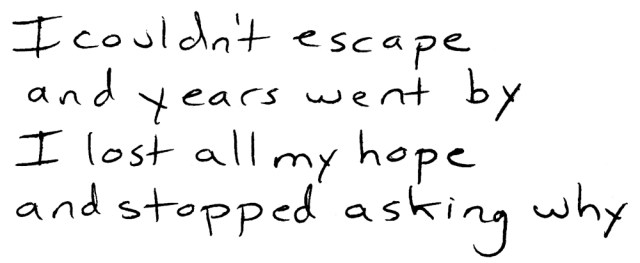 I couldn't escape
and years went by
I lost all my hope
and stopped asking why